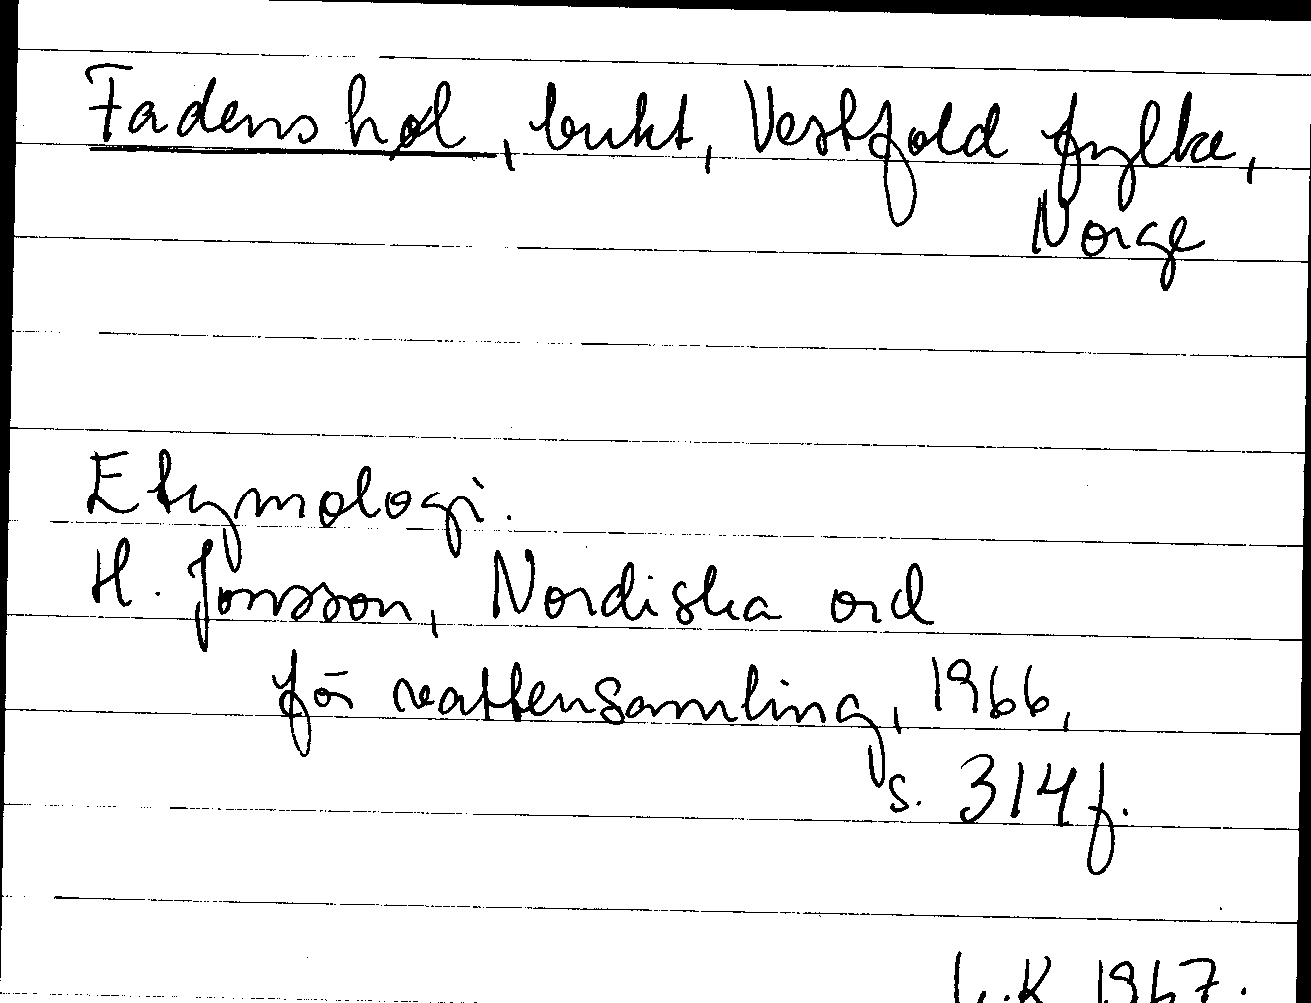 Fadenshøl, bukt, Vestfold fylke,
Norge
Etymologi.
H. Jonsson, Nordiska ord
för vattensamling, 1966,
s. 314f.
1967.